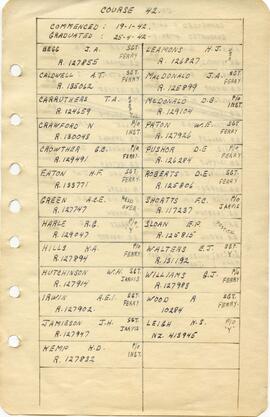 COURSE 42.
COMMENCED : 19-1-42.
GRADUATED : 25-4-42.
BEGG J.A. SGT. FERRY
R.127855
CALDWELL A.T. SGT. FERRY
R.135062
CARRUTHERS T.A.
R.124659
CRAWFORD N P/O INST.
R.130048
CROWTHER G.C. P/O FERRY
R.129491
EATON H.F. SGT. FERRY
R.133771
GREEN A.C.E.
R.127747
HARLE R.G.
R.129047
HILLS K.A. P/O FERRY
R.127894
HUTCHINSON W.H. SGT. JARVIS
R.127914
IRWIN A.E.I. SGT. FERRY
R.127902.
JAMIESON J.H. SGT. JARVIS
R.127947
KEMP H.D. P/O INST.
R.127832
LEAMONS H.J.
R.126827
MacDONALD J.A. SGT. FERRY
R.125899
McDONALD D.G. P/O INST.
R.129104
PATON W.E. SGT. FERRY
R.127926
PUSHOR D.E. P/O FERRY
R.126284
ROBERTS D.E. SGT. FERRY
R.125806
SHORTTS F.C. P/O JARVIS
R.117237
SLOAN E.P.
R.125815
WALTERS E.J. SGT. "Y"
R.131192
WILLIAMS G.J. P/O FERRY
R.127983
WOOD R SGT. FERRY
10284
LEIGH N.S. P/O "Y"
NZ 413945